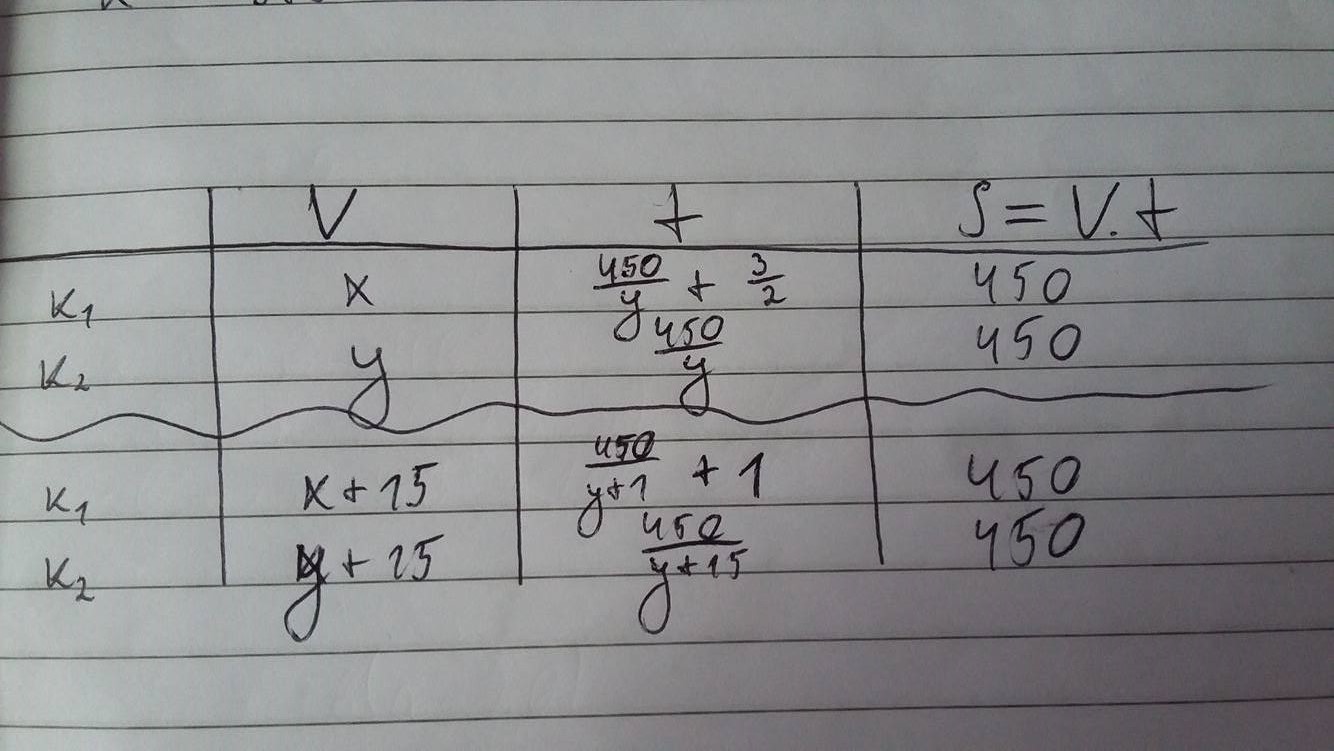 V t S = V.t
K1 x 450/y + 3/2 450
K2 y 450/y 450
K1 x + 15 450/y+1 + 1 450
K2 y + 15 450/y+15 450